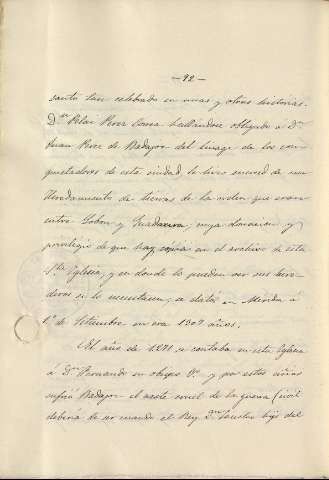 — 92 —
santo tan celebrado en unas y otras historias.
Dn Pelai Perez Correa hallandose obligado á Dn
Juan Perez de Badajoz del linage de los con-
quistadores de esta ciudad le hizo merced de un
Heredamiento de tierras de la orden que eran
entre Lobon y Guadaxira, cuya donacion y
privilegio de que hay copia en el archivo de esta
Sta Iglesia, y en donde la pueden ver sus here-
deros si la necesitaren, se data en Merida á
1º de Setiembre en era 1307 años.
El año de 1271 se contaba en esta Iglesia
á Dn Fernando su obispo 2º y por estos años
sufria Badajoz el azote cruel de la guerra (civil
deberia de ser cuando el Rey Dn Sancho hijo del